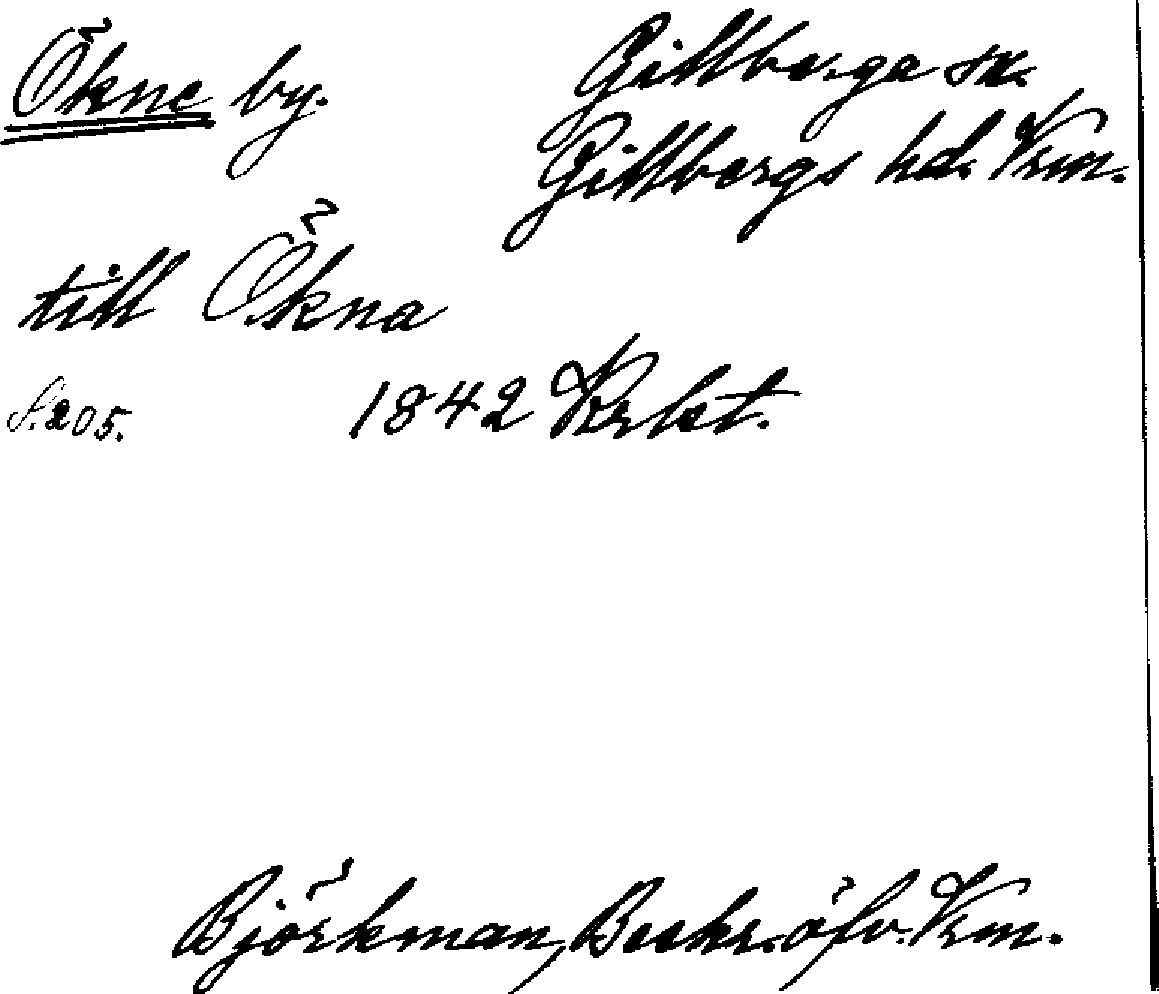 Ökne by.
Gillberga sn.
Gillbergs hd. Vrm.
till Ökna
S. 205. 1842 Krlst.
Björkman, Beskr. öfv. Vrm.